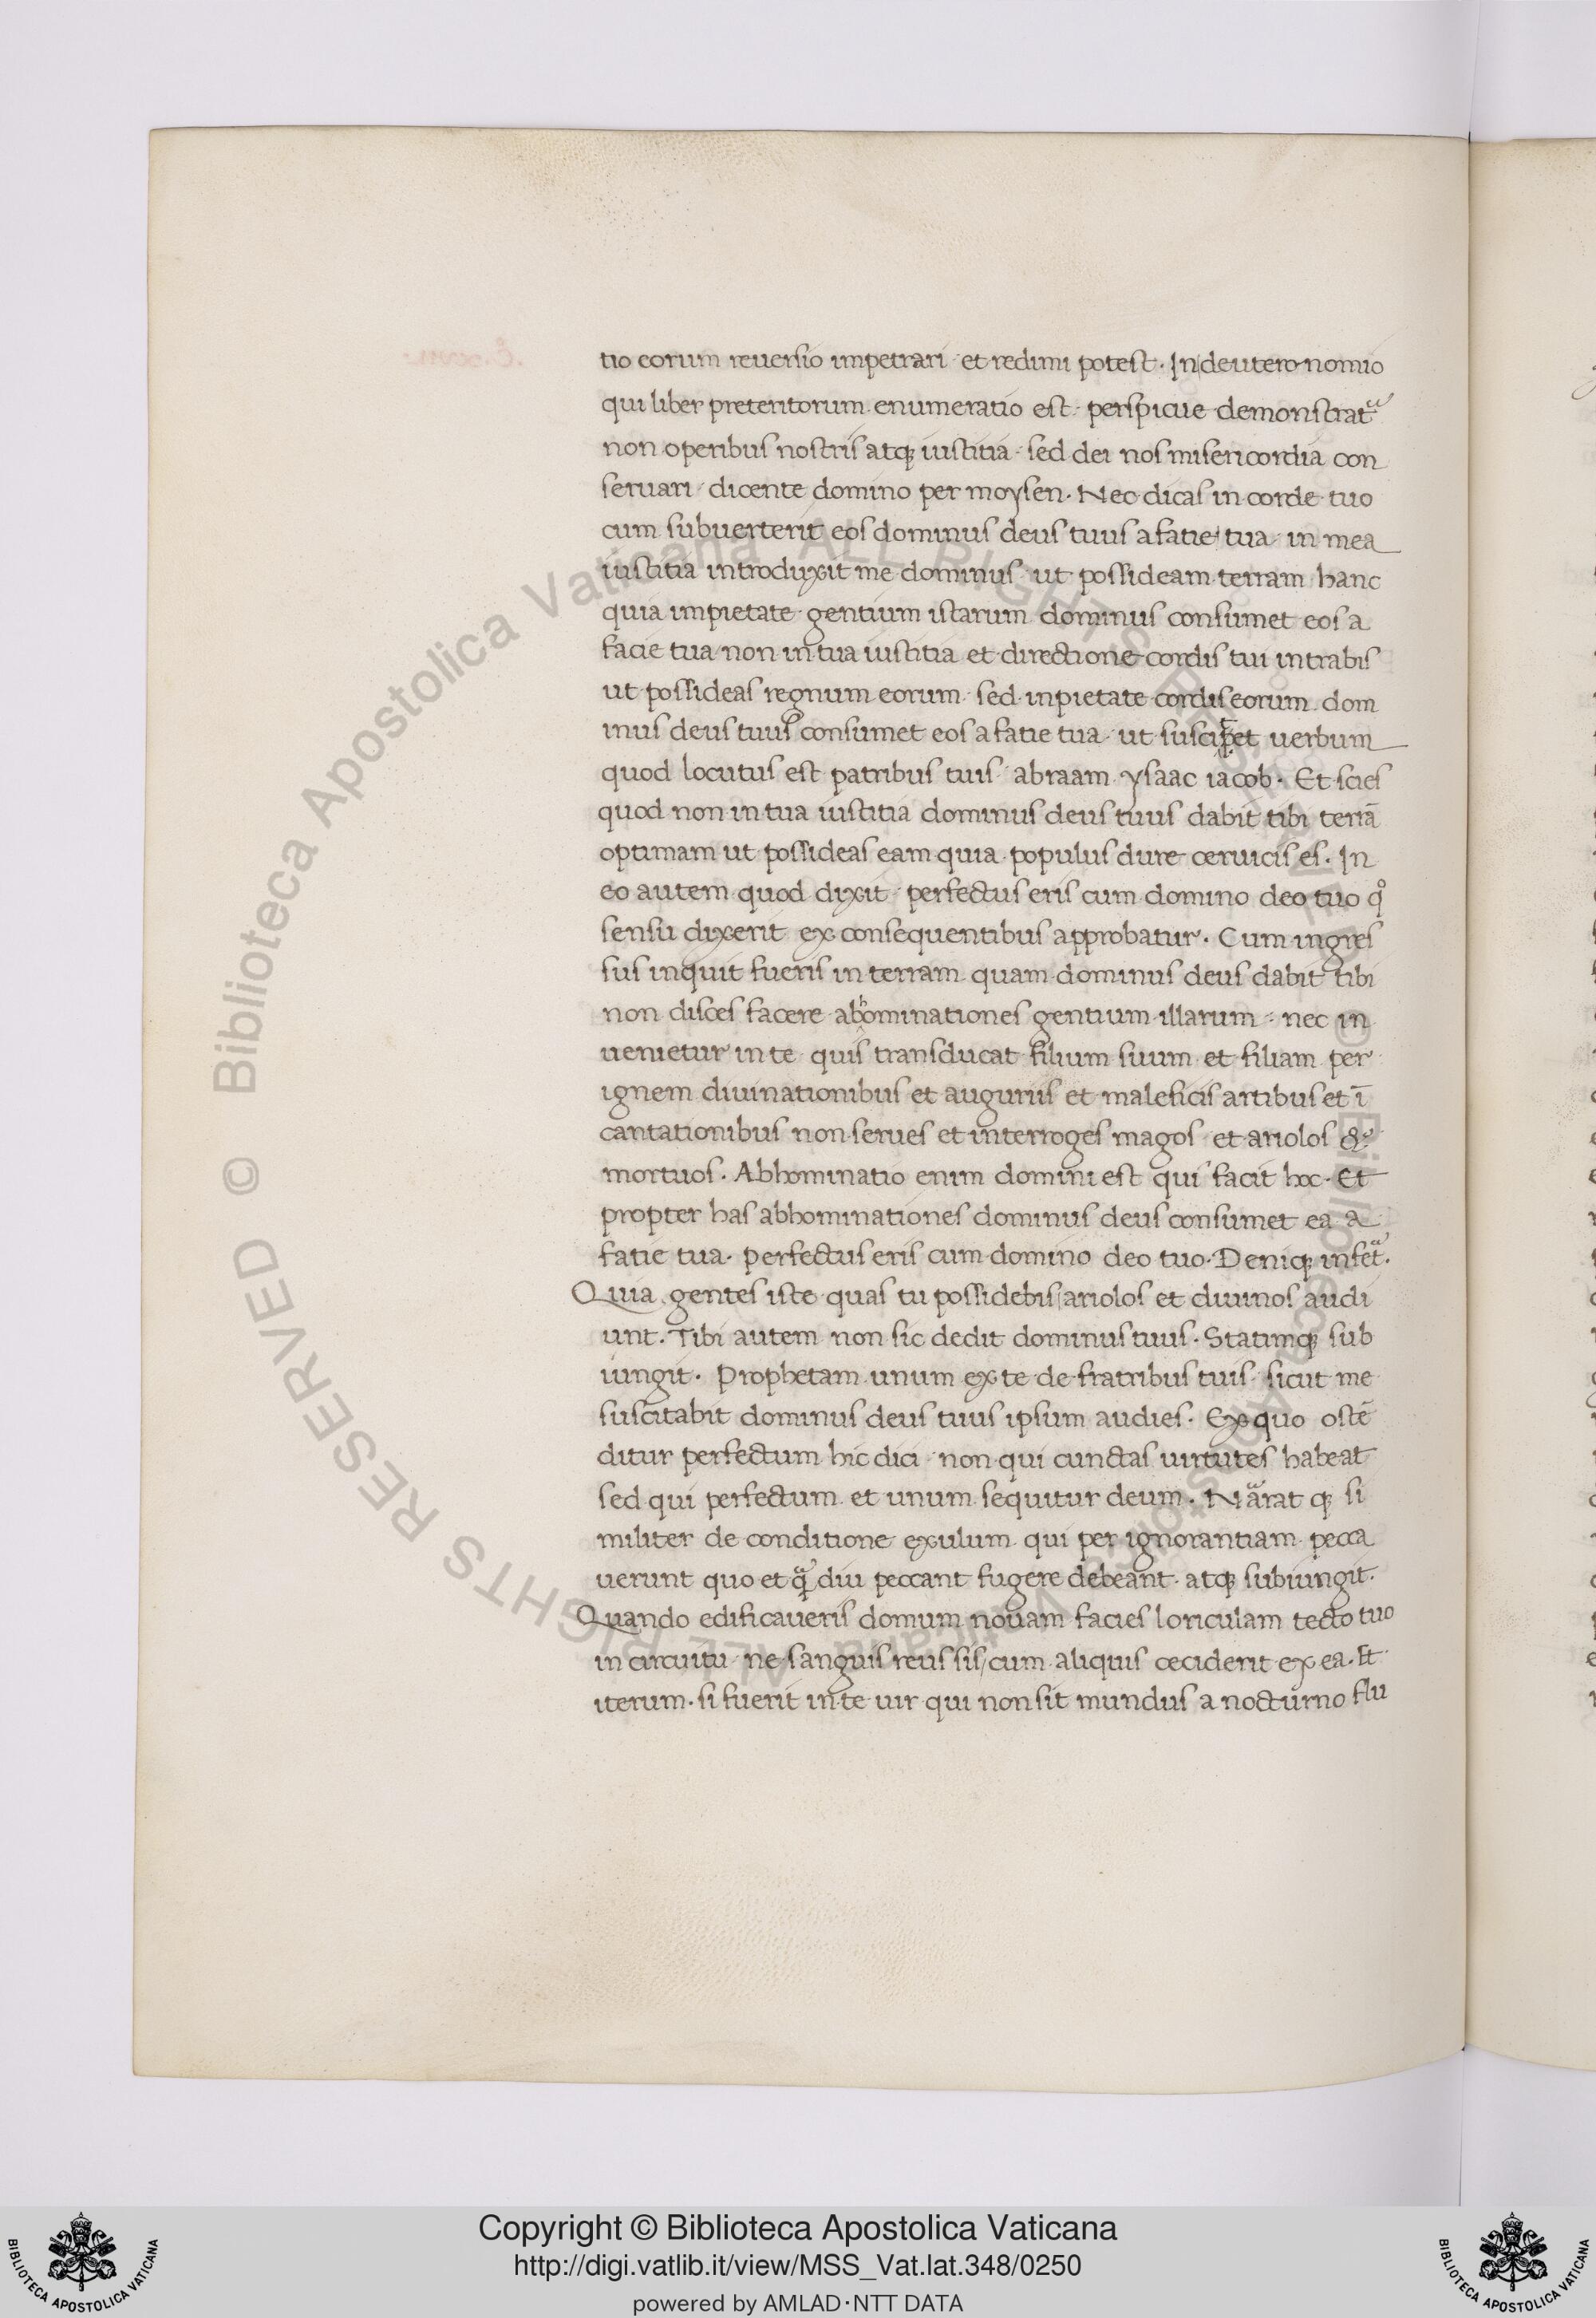 tio eorum reuersio impetrari et redimi potest. In deuteronomio
qui liber preteritorum enumeratio est perspicue demonstratᷓ
non operibus nostris atq; iustitia sed dei nos misericordia con
seruari dicente domino per moysen. Nec dicas in corde tuo
cum subuerterit eos dominus deus tuus a fatie tua in mea
iustitia introduxit me dominus ut possideam terram hanc
quia impietate gentium istarum dominus consumet eos a
facie tua non in tua iustitia et directione cordis tui intrabis
ut possideas regnum eorum sed inpietate cordis eorum dom
inus deus tuus consumet eos a fatie tua ut uerbum
quod locutus est patribus tuis abraam ysaac iacob. Et scies
quod non in tua iustitia dominus deus tuus dabit tibi terrā
optimam ut possideas eam quia populus dure ceruicis es. In
eo autem quod dixit perfectus eris cum domino deo tuo qͦ
sensu dixerit ex consequentibus approbatur. Cum ingres
sus inquit fueris in terram quam dominus deus dabit tibi
non disces facere abhominationes gentium illarum nec in
uenietur in te quis transducat filium suum et filiam per
ignem diuinationibus et auguriis et maleficis artibus et ī
cantationibus non serues et interroges magos et ariolos &
mortuos. Abhominatio enim domini est qui facit hoc. Et
propter has abhominationes dominus deus consumet ea a
fatie tua. perfectus eris cum domino deo tuo. Deniq; infetᷓ.
Quia gentes iste quas tu possidebis ariolos et diuinos audi
unt. Tibi autem non sic dedit dominus tuus. Statimq; sub
iungit. Prophetam unum ex te de fratribus tuis sicut me
suscitabit dominus deus tuus ipsum audies. Ex quo ostē
ditur perfectum hic dici non qui cunctas uirtutes habeat
sed qui perfectum et unum sequitur deum. Naᷓrat q; si
militer de conditione exulum qui per ignorantiam pecca
uerunt quo et qᷓdiu peccant fugere debeant. atq; subiungit.
Quando edificaueris domum nouam facies loriculam tecto tuo
in circuitu ne sanguis reus sis cum aliquis ceciderit ex ea. Et
iterum. si fuerit in te uir qui non sit mundus a nocturno flu
Copyright © Biblioteca Apostolica Vaticana
http://digi.vatlib.it/view/MSS_Vat.lat.348/0250
powered by AMLAD·NTT DATA
BIBLIOTECA APOSTOLICA VATICANA
BIBLIOTECA APOSTOLICA VATICANA
© Biblioteca Apostolica Vaticana ALL RIGHTS RESERVED © Biblioteca Apostolica Vaticana ALL RIGHTS RESERVED